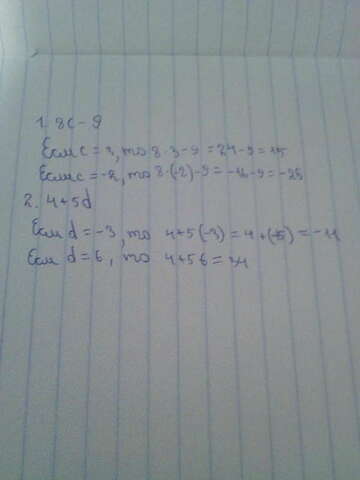 1. 8c - 9
Если c = 3, то 8·3-9 = 24-9 = 15
Если c = -2, то 8·(-2)-9 = -16-9 = -25
2. 4+5d
Если d = -3, то 4+5(-3) = 4+(-15) = -11
Если d = 6, то 4+5 6 = 34